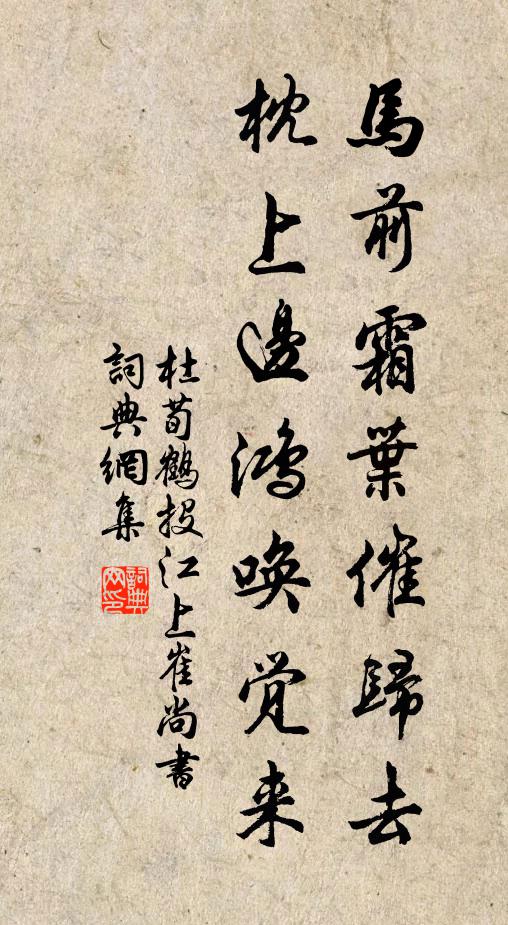 馬前霜葉催歸去
枕上邊鴻唤觉来
杜荀鶴投江上崔尚書
詞典網集
詞典网印